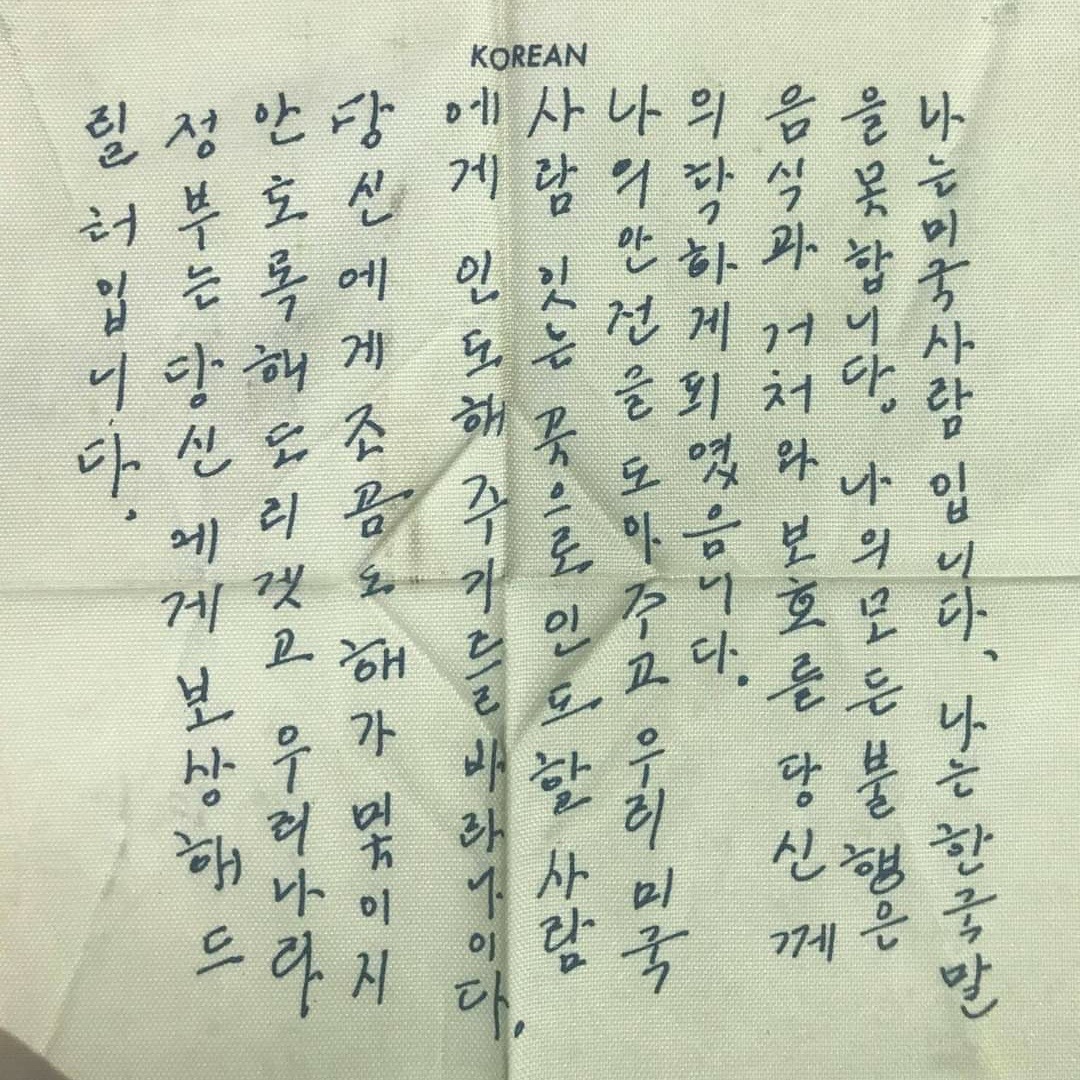 KOREAN
나는 미국 사람 입니다、 나는 한국 말
을 못 합니다. 나의 모든 불행은
음식과 거처와 보호를 당신께
의탁하게 되였음니다.
나의 안전을 도아주고 우리 미국
사람 잇는 곳으로 인도할 사람
에게 인도해 주기를 바라나이다.
당신에게 조곰도 해가 밎이지
안토록 해 도리겟고 우리나라
정부는 당신에게 보상해 드
릴 터입니다.